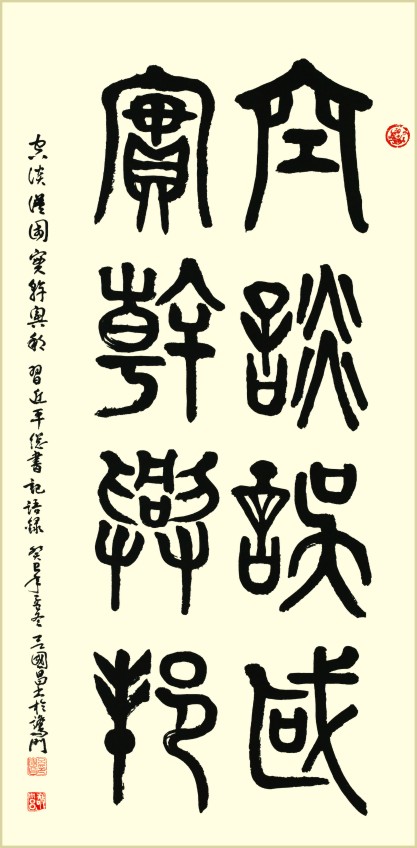 空談誤國
實幹興邦
空談误國實幹興邦 習近平總書記語録 癸巳年之冬 吴國昌書於鷺門